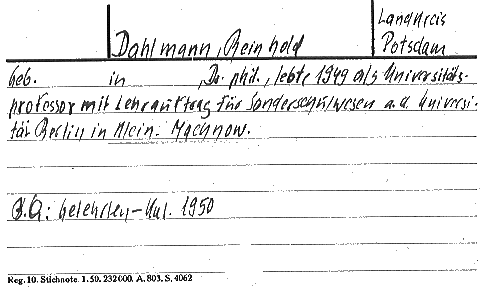 Landkreis
Dahlmann, Reinhold Potsdam
geb. in , Dr. phil., lebte 1949 als Universitäts-
professor mit Lehrauftrag für Sonderschulwesen a. d. Universi-
tät Berlin in Klein-Machnow.
B.Q: Gelehrten-Kal. 1950
Reg. 10. Stichnote. 1. 50. 232000. A. 803. S. 4062